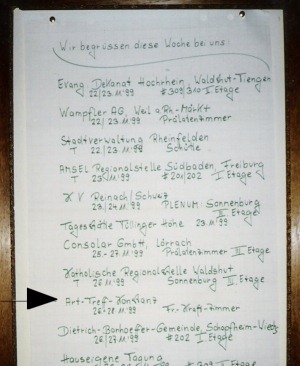 Wir begrüssen diese Woche bei uns:
Evang. Dekanat Hochrhein, Waldshut-Tiengen
22/23.11.99 #309/310 II Etage
Wampfler AG, Weil a. Rh.-Märkt
22/23.11.99 Prälatenzimmer
Stadtverwaltung Rheinfelden
T 22/23.11.99 Schütte
AMSEL Regionalstelle Südbaden, Freiburg
T 23.11.99 #201/202 I Etage
K V Reinach/Schweiz
23/24.11.99 PLENUM: Sonnenburg
II Etage
Tagesstätte Tüllinger Höhe 23.11.99
Consolar GmbH, Lörrach
25-27.11.99 Prälatenzimmer III Etage
Katholische Regionalstelle Waldshut
T 26.11.99 Sonnenburg III Etage
Art-Treff-Konstanz
26-28.11.99 Fr.-Kraft-Zimmer
Dietrich-Bonhoeffer-Gemeinde, Schopfheim
26/27.11.99 #202 I. Etage
Hauseigene Tagung